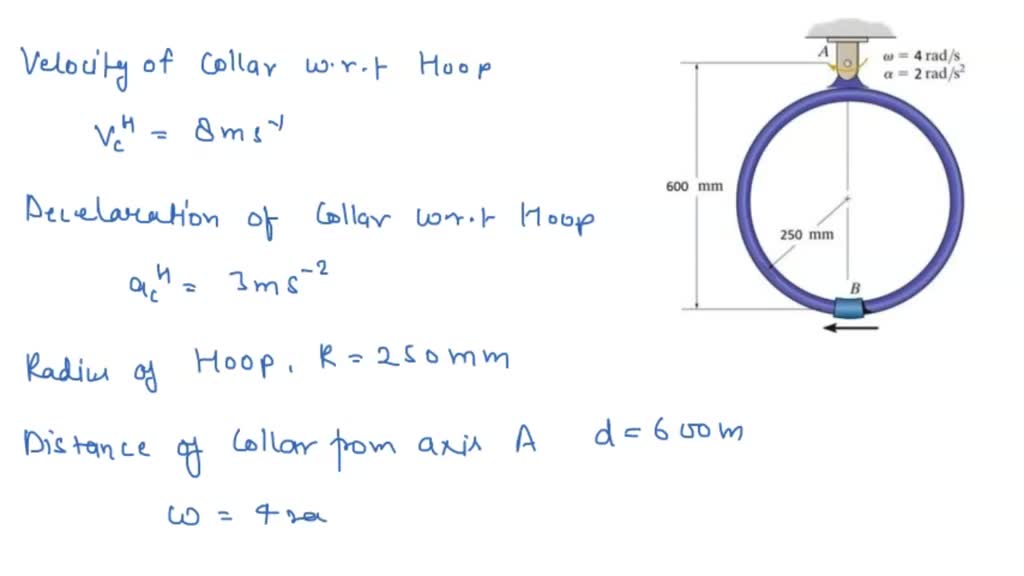 Velocity of Collar w.r.t Hoop
V_c^H = 8ms⁻¹
Decelaration of Collar w.r.t Hoop
a_c^H = 3ms⁻²
Radius of Hoop, R = 250mm
Distance of Collar from axis A d = 600m
ω = 4ra
A
ω = 4 rad/s
α = 2 rad/s²
600 mm
250 mm
B